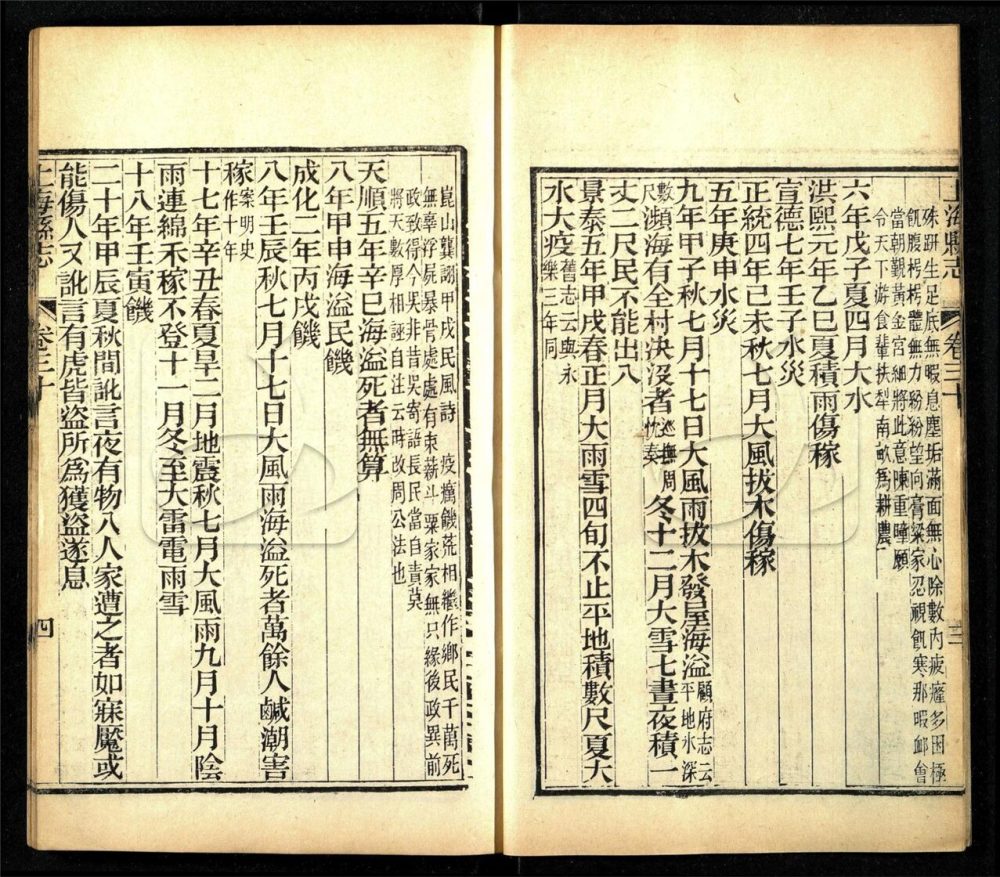 上海縣志 卷三十 三
殊趼生足底無暇息塵垢滿面無心除數內疲癃多困極
飢腹枵枵體無力粉粉望向膏粱家忍視飢寒那暇卹會
當朝覲黃金宮細將此意陳重瞳願
令天下游食輩扶犁南畝為耕農
六年戊子夏四月大水
洪熙元年乙巳夏積雨傷稼
宣德七年壬子水災
正統四年己未秋七月大風拔木傷稼
五年庚申水災
九年甲子秋七月十七日大風雨拔木發屋海溢顧府志云平地水深
數尺瀕海有全村決沒者巡撫周忱奏冬十二月大雪七晝夜積一
丈二尺民不能出入
景泰五年甲戌春正月大雨雪四旬不止平地積數尺夏大
水大疫舊志云與永樂三年同
崑山龔詡甲戌民風詩 疫癘饑荒相繼作鄉民千萬死
無辜浮屍暴骨處處有束薪斗粟家家無只緣後政異前
政致得今吳非昔吳寄語長民當自責莫
將天數厚相誣自注云時改周公法也
天順五年辛巳海溢死者無算
八年甲申海溢民饑
成化二年丙戌饑
八年壬辰秋七月十七日大風雨海溢死者萬餘人鹹潮害
稼案明史作十年
十七年辛丑春夏旱二月地震秋七月大風雨九月十月陰
雨連綿禾稼不登十一月冬至大雷電雨雪
十八年壬寅饑
二十年甲辰夏秋間訛言夜有物入人家遭之者如寐魘或
能傷人又訛言有虎皆盜所為獲盜遂息
上海縣志 卷三十 四